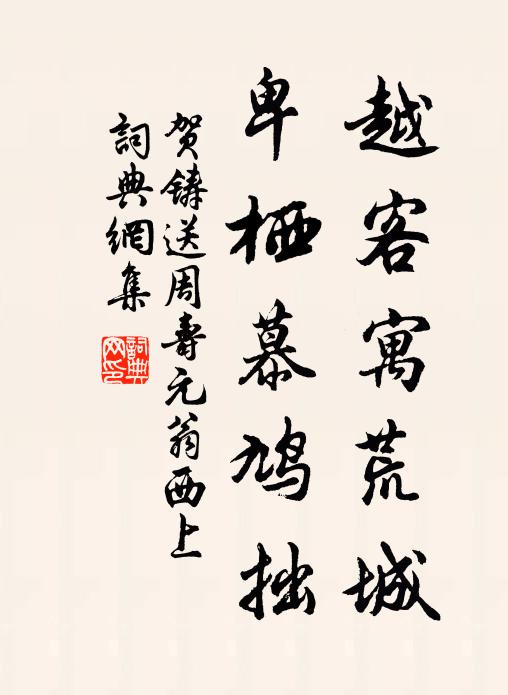 越客寓荒城
卑栖慕鸠拙
贺铸送周寿元翁西上
詞典網集
詞典網印